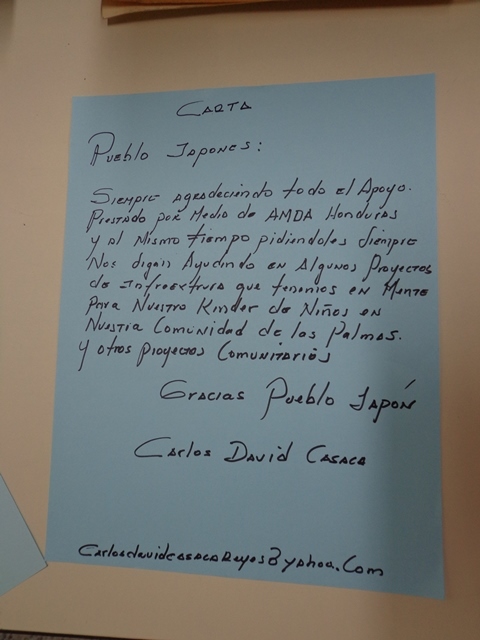 CARTA
Pueblo Japones:
Siempre agradeciendo todo el Apoyo.
Prestado por Medio de AMDA Honduras
y al Mismo tiempo pidiendoles Siempre
Nos sigan Ayudando en Algunos Proyectos
de Infraextrura que tenemos en Mente
Para Nuestro Kinder de Niños en
Nuestra Comunidad de las Palmas.
y otros proyectos Comunitarios
Gracias Pueblo Japón
Carlos David Casaca
Carlosdavidcasacareyes@yahoo.Com